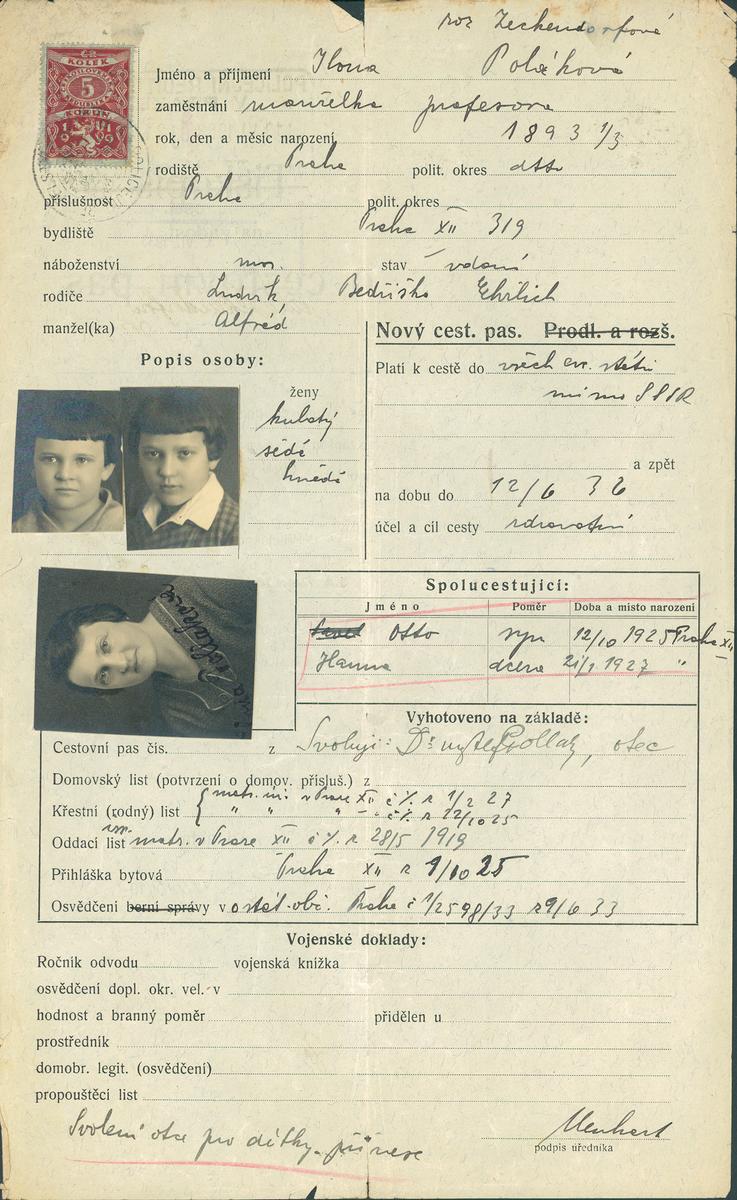 roz Zeckendorfová
ČR
KOLEK
5
KORUN
Jméno a příjmení Ilona Poláková
zaměstnání manželka profesora
rok, den a měsíc narození 1893 1/3
rodiště Praha polit. okres dtto
příslušnost Praha polit. okres
bydliště Praha XII 319
náboženství mos. stav vdaná
rodiče Ludvík, Bedřiška Ehrlich
manžel(ka) Alfréd
Nový cest. pas. Prodl. a rozš.
Popis osoby:
Platí k cestě do všech evr. států
mimo SSSR
ženy
kulatý
šedé
hnědé
a zpět
na dobu do 12/6 36
účel a cíl cesty zdravotní
Spolucestující:
Jméno Poměr Doba a místo narození
Otto syn 12/10 1925 Praha XII
Hanna dcera 21/1 1927 "
Vyhotoveno na základě:
Cestovní pas čís. z Svoluji: Pollak, otec
Domovský list (potvrzení o domov. přísluš.) z
Křestní (rodný) list matr. v Praze XII č %. z 1/2 27
" " " č %. z 22/10 25
Oddací list matr. v Praze XII č %. z 28/5 1919
Přihláška bytová Praha XII z 9/10 25
Osvědčení berní správy v o stát. obč. Praha č 1/2598/33 z 9/6 33
Vojenské doklady:
Ročník odvodu vojenská knížka
osvědčení dopl. okr. vel. v
hodnost a branný poměr přidělen u
prostředník
domobr. legit. (osvědčení)
propouštěcí list
Svolení otce pro dítky přinese
podpis úředníka